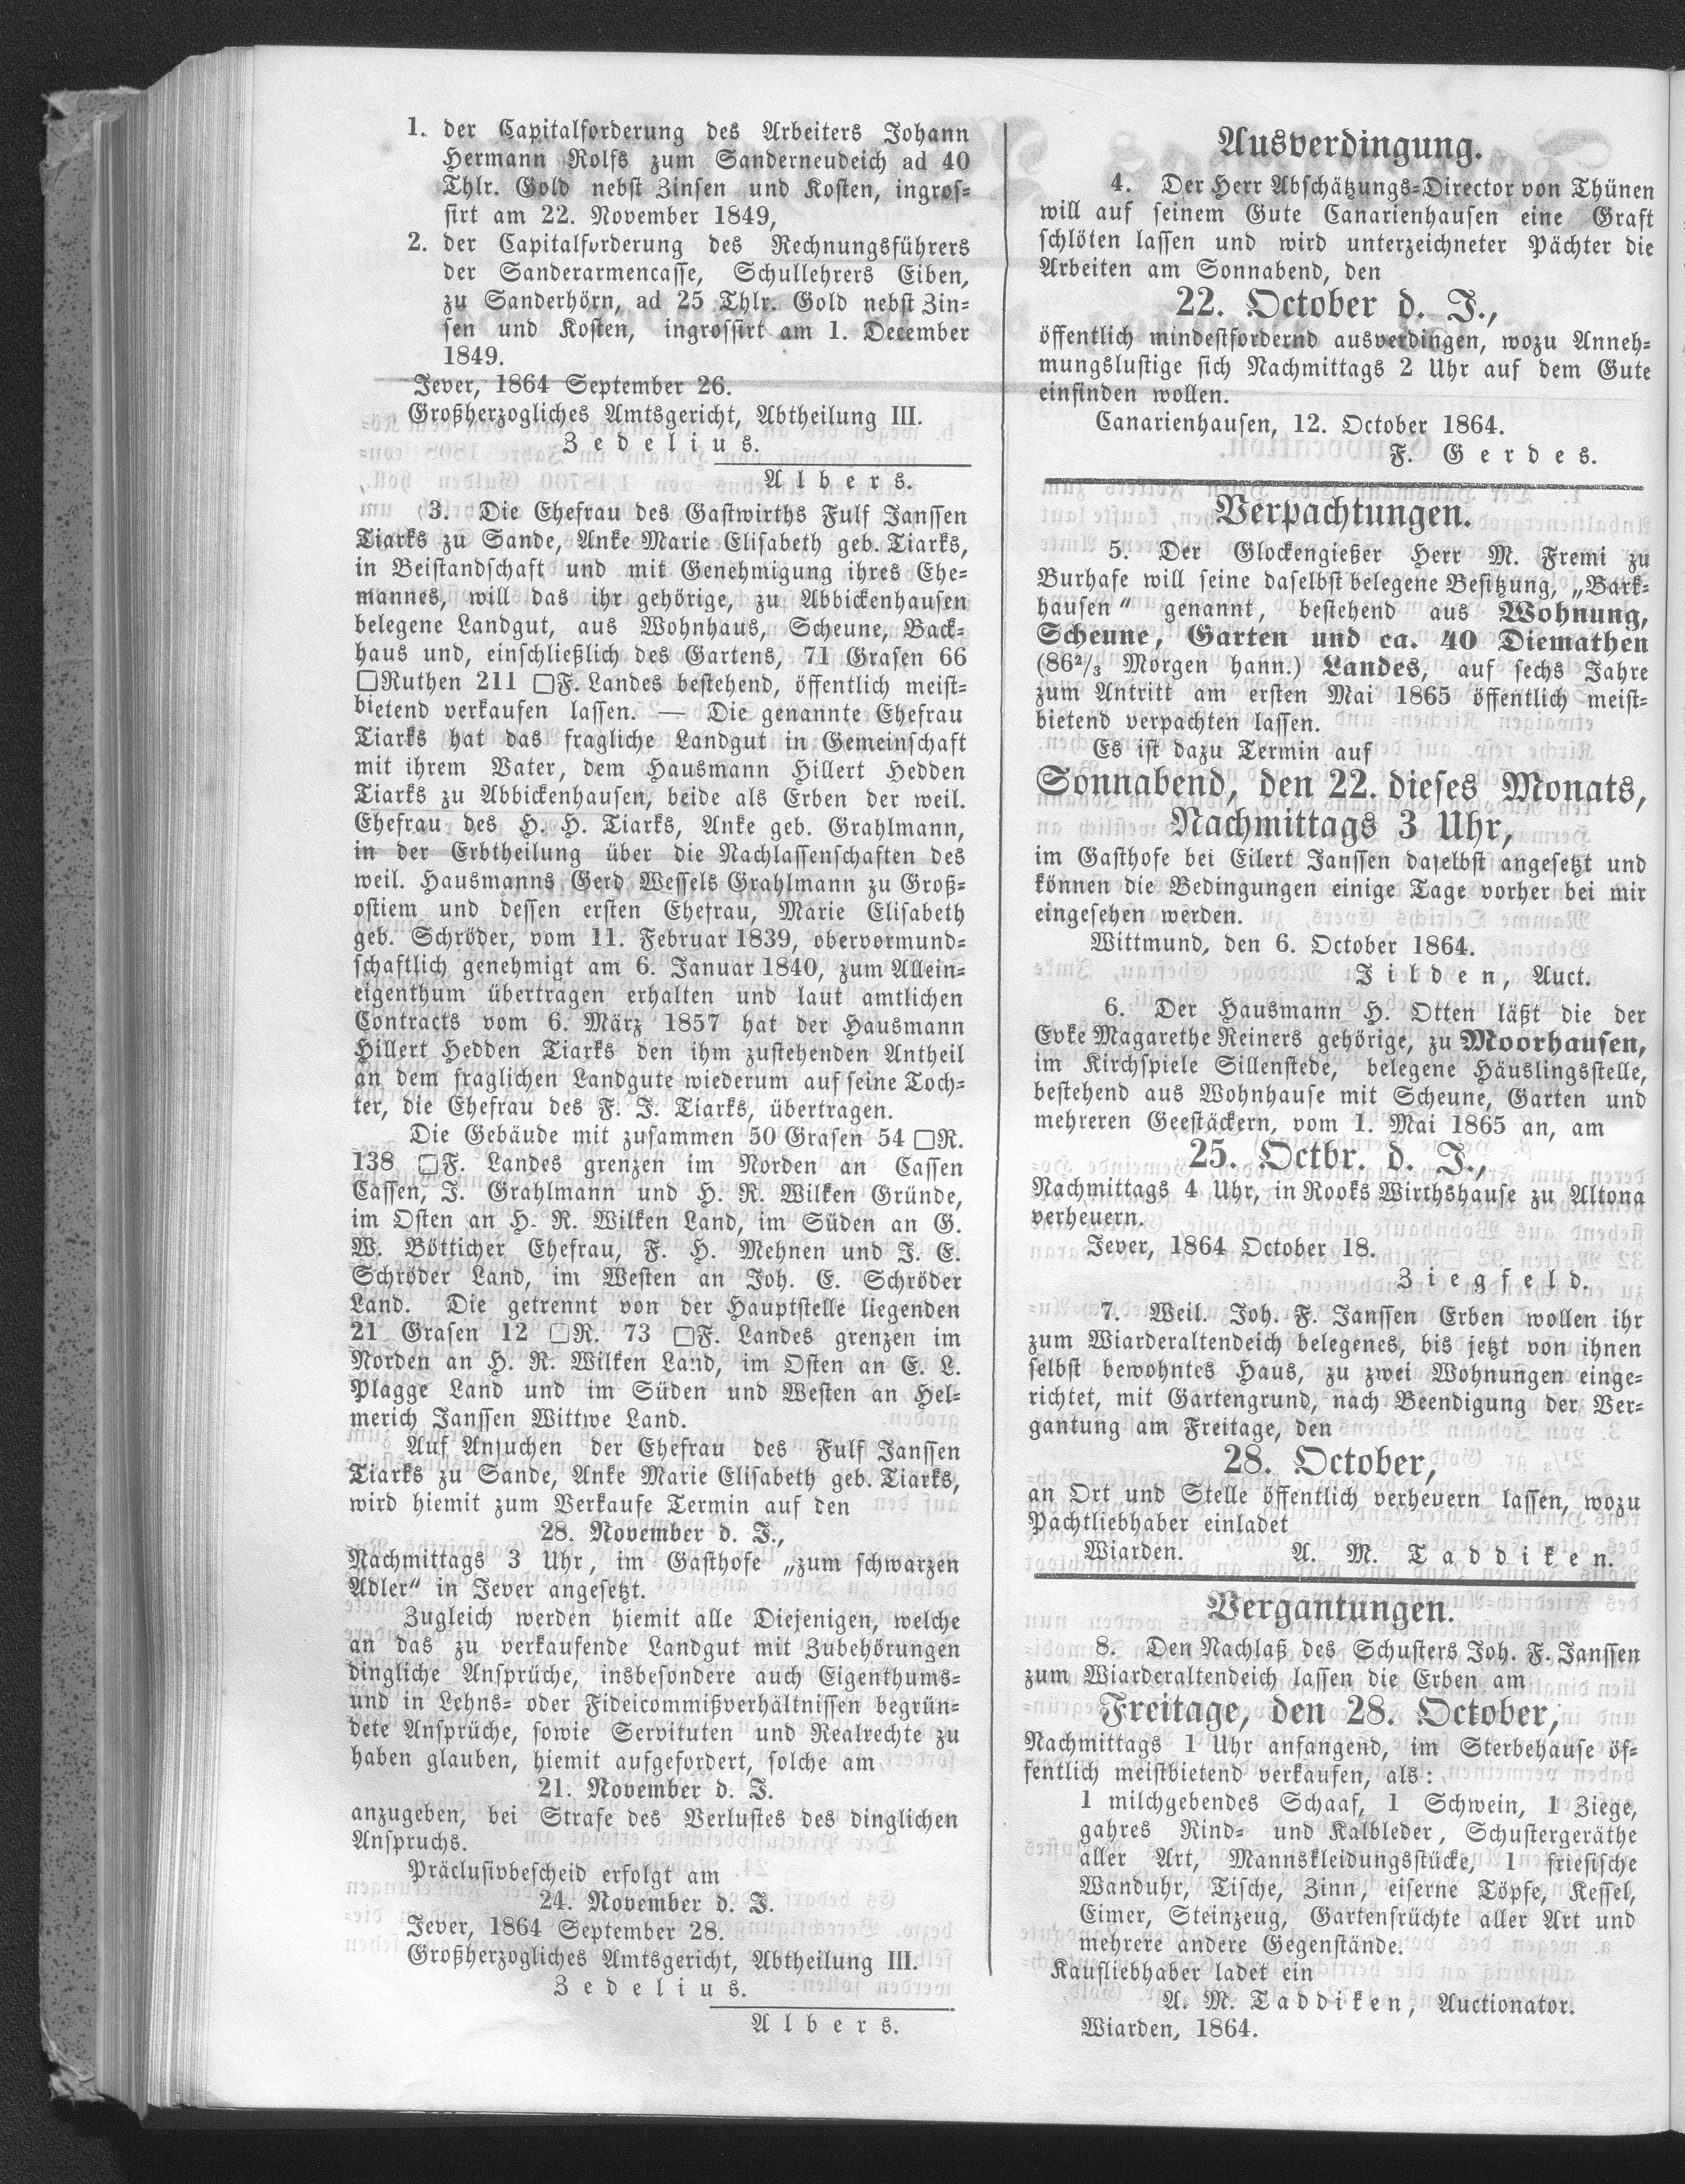 1. der Capitalforderung des Arbeiters Johann
Hermann Rolfs zum Sanderneudeich ad 40
Thlr. Gold nebst Zinsen und Kosten, ingros-
sirt am 22. November 1849,
2. der Capitalforderung des Rechnungsführers
der Sanderarmencasse, Schullehrers Eiben,
zu Sanderhörn, ad 25 Thlr. Gold nebst Zin-
sen und Kosten, ingrossirt am 1. December
1849.
Jever, 1864 September 26.
Großherzogliches Amtsgericht, Abtheilung III.
Zedelius.
Albers.
3. Die Ehefrau des Gastwirths Fulf Janssen
Tiarks zu Sande, Anke Marie Elisabeth geb. Tiarks,
in Beistandschaft und mit Genehmigung ihres Ehe-
mannes, will das ihr gehörige, zu Abbickenhausen
belegene Landgut, aus Wohnhaus, Scheune, Back-
haus und, einschließlich des Gartens, 71 Grasen 66
□Ruthen 211 □F. Landes bestehend, öffentlich meist-
bietend verkaufen lassen. — Die genannte Ehefrau
Tiarks hat das fragliche Landgut in Gemeinschaft
mit ihrem Vater, dem Hausmann Hillert Hedden
Tiarks zu Abbickenhausen, beide als Erben der weil.
Ehefrau des H. H. Tiarks, Anke geb. Grahlmann,
in der Erbtheilung über die Nachlassenschaften des
weil. Hausmanns Gerd Wessels Grahlmann zu Groß-
ostiem und dessen ersten Ehefrau, Marie Elisabeth
geb. Schröder, vom 11. Februar 1839, obervormund-
schaftlich genehmigt am 6. Januar 1840, zum Allein-
eigenthum übertragen erhalten und laut amtlichen
Contracts vom 6. März 1857 hat der Hausmann
Hillert Hedden Tiarks den ihm zustehenden Antheil
an dem fraglichen Landgute wiederum auf seine Toch-
ter, die Ehefrau des F. J. Tiarks, übertragen.
Die Gebäude mit zusammen 50 Grasen 54 □R.
138 □F. Landes grenzen im Norden an Cassen
Cassen, J. Grahlmann und H. R. Wilken Gründe,
im Osten an H. R. Wilken Land, im Süden an G.
W. Bötticher Ehefrau, F. H. Mehnen und J. E.
Schröder Land, im Westen an Joh. E. Schröder
Land. Die getrennt von der Hauptstelle liegenden
21 Grasen 12 □R. 73 □F. Landes grenzen im
Norden an H. R. Wilken Land, im Osten an E. L.
Plagge Land und im Süden und Westen an Hel-
merich Janssen Wittwe Land.
Auf Ansuchen der Ehefrau des Fulf Janssen
Tiarks zu Sande, Anke Marie Elisabeth geb. Tiarks,
wird hiemit zum Verkaufe Termin auf den
28. November d. J.,
Nachmittags 3 Uhr, im Gasthofe „zum schwarzen
Adler“ in Jever angesetzt.
Zugleich werden hiemit alle Diejenigen, welche
an das zu verkaufende Landgut mit Zubehörungen
dingliche Ansprüche, insbesondere auch Eigenthums-
und in Lehns- oder Fideicommißverhältnissen begrün-
dete Ansprüche, sowie Servituten und Realrechte zu
haben glauben, hiemit aufgefordert, solche am
21. November d. J.
anzugeben, bei Strafe des Verlustes des dinglichen
Anspruchs.
Präclusivbescheid erfolgt am
24. November d. J.
Jever, 1864 September 28.
Großherzogliches Amtsgericht, Abtheilung III.
Zedelius.
Albers.
Ausverdingung.
4. Der Herr Abschätzungs-Director von Thünen
will auf seinem Gute Canarienhausen eine Graft
schlöten lassen und wird unterzeichneter Pächter die
Arbeiten am Sonnabend, den
22. October d. J.,
öffentlich mindestfordernd ausverdingen, wozu Anneh-
mungslustige sich Nachmittags 2 Uhr auf dem Gute
einfinden wollen.
Canarienhausen, 12. October 1864.
F. Gerdes.
Verpachtungen.
5. Der Glockengießer Herr M. Fremi zu
Burhafe will seine daselbst belegene Besitzung, „Bark-
hausen“ genannt, bestehend aus Wohnung,
Scheune, Garten und ca. 40 Diemathen
(86²/₃ Morgen hann.) Landes, auf sechs Jahre
zum Antritt am ersten Mai 1865 öffentlich meist-
bietend verpachten lassen.
Es ist dazu Termin auf
Sonnabend, den 22. dieses Monats,
Nachmittags 3 Uhr,
im Gasthofe bei Eilert Janssen daselbst angesetzt und
können die Bedingungen einige Tage vorher bei mir
eingesehen werden.
Wittmund, den 6. October 1864.
Jilden, Auct.
6. Der Hausmann H. Otten läßt die der
Evke Magarethe Reiners gehörige, zu Moorhausen,
im Kirchspiele Sillenstede, belegene Häuslingsstelle,
bestehend aus Wohnhause mit Scheune, Garten und
mehreren Geestäckern, vom 1. Mai 1865 an, am
25. Octbr. d. J.,
Nachmittags 4 Uhr, in Rooks Wirthshause zu Altona
verheuern.
Jever, 1864 October 18.
Ziegfeld.
7. Weil. Joh. F. Janssen Erben wollen ihr
zum Wiarderaltendeich belegenes, bis jetzt von ihnen
selbst bewohntes Haus, zu zwei Wohnungen einge-
richtet, mit Gartengrund, nach Beendigung der Ver-
gantung am Freitage, den
28. October,
an Ort und Stelle öffentlich verheuern lassen, wozu
Pachtliebhaber einladet
Wiarden. A. M. Taddiken.
Vergantungen.
8. Den Nachlaß des Schusters Joh. F. Janssen
zum Wiarderaltendeich lassen die Erben am
Freitage, den 28. October,
Nachmittags 1 Uhr anfangend, im Sterbehause öf-
fentlich meistbietend verkaufen, als:
1 milchgebendes Schaaf, 1 Schwein, 1 Ziege,
gahres Rind- und Kalbleder, Schustergeräthe
aller Art, Mannskleidungsstücke, 1 friesische
Wanduhr, Tische, Zinn, eiserne Töpfe, Kessel,
Eimer, Steinzeug, Gartenfrüchte aller Art und
mehrere andere Gegenstände.
Kaufliebhaber ladet ein
A. M. Taddiken, Auctionator.
Wiarden, 1864.